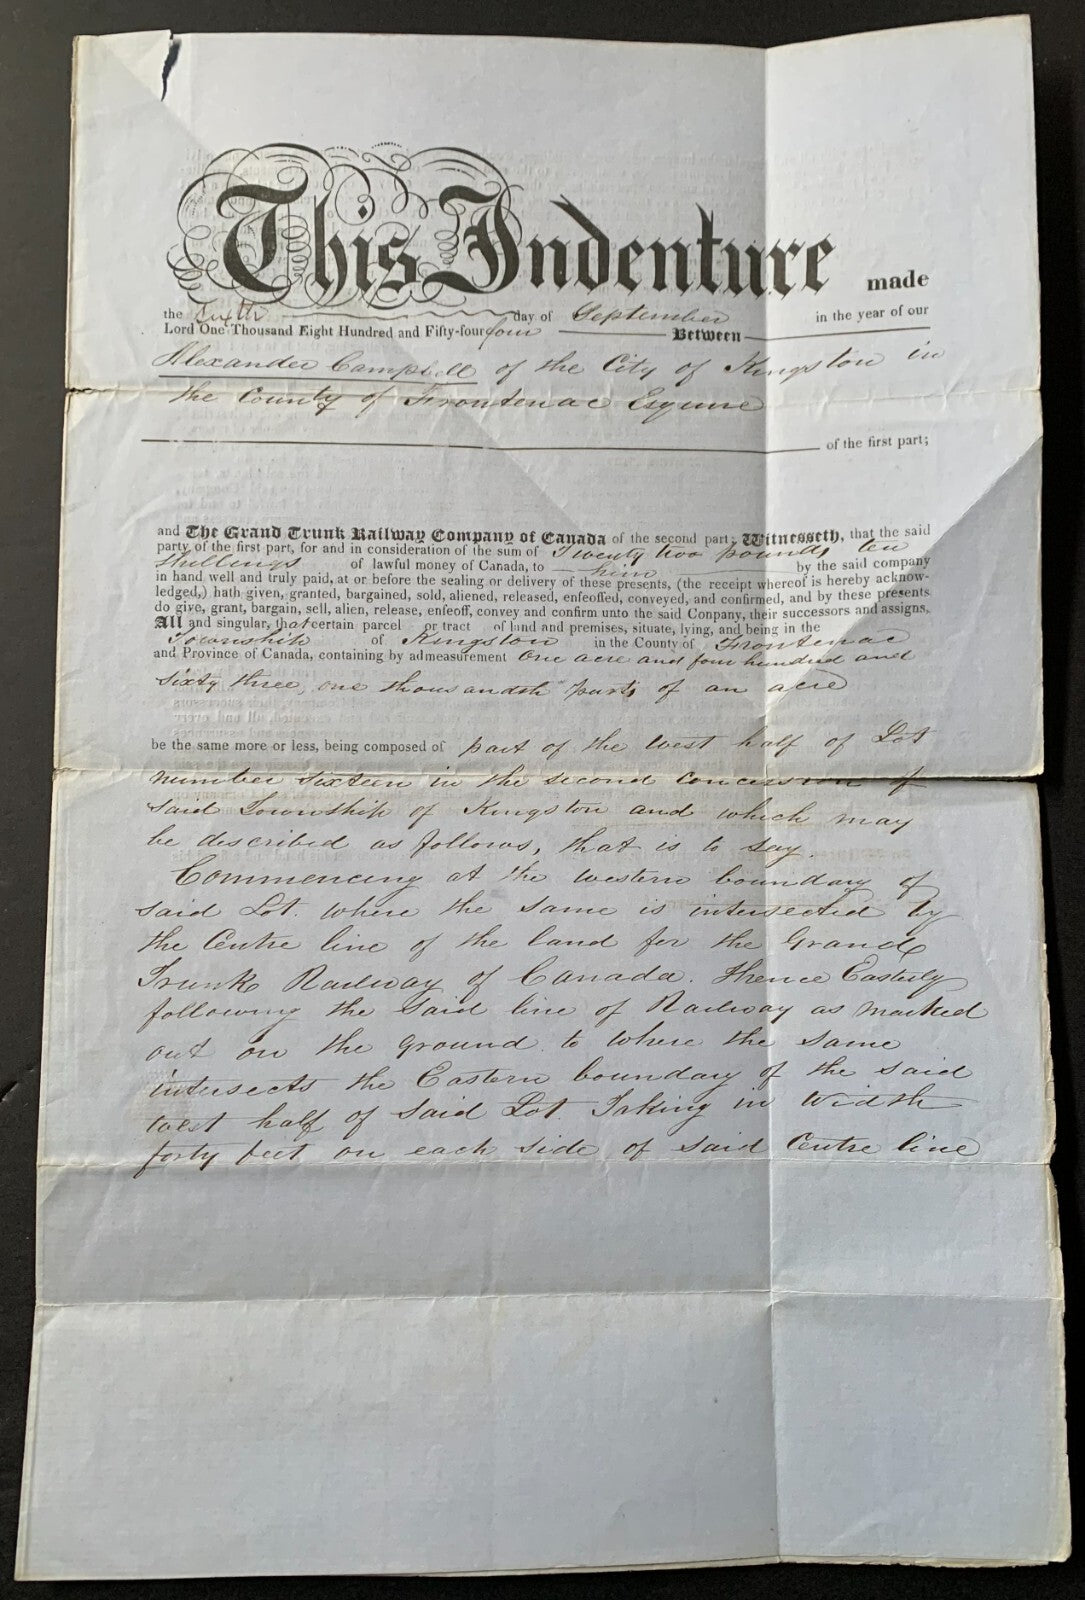 This Indenture made
the sixth day of September in the year of our
Lord One Thousand Eight Hundred and Fifty-four four Between
Alexander Campbell of the City of Kingston in
the County of Frontenac Esquire
of the first part;
and The Grand Trunk Railway Company of Canada of the second part; Witnesseth, that the said
party of the first part, for and in consideration of the sum of Twenty two pounds, ten
shillings of lawful money of Canada, to him by the said company
in hand well and truly paid, at or before the sealing or delivery of these presents, (the receipt whereof is hereby acknow-
ledged,) hath given, granted, bargained, sold, aliened, released, enfeoffed, conveyed, and confirmed, and by these presents
do give, grant, bargain, sell, alien, release, enfeoff, convey and confirm unto the said Conpany, their successors and assigns,
All and singular, that certain parcel or tract of land and premises, situate, lying, and being in the
Township of Kingston in the County of Frontenac
and Province of Canada, containing by admeasurement One acre and four hundred and
sixty three, one thousandth parts of an acre
be the same more or less, being composed of part of the West half of Lot
number sixteen in the second concession of
said Township of Kingston and which may
be described as follows, that is to say.
Commencing at the western boundary of
said Lot. where the same is intersected by
the Centre line of the land for the Grand
Trunk Railway of Canada. thence Easterly
following the said line of Railway as marked
out on the ground to where the same
intersects the Eastern boundary of the said
west half of said Lot Taking in width
forty feet on each side of said Centre line